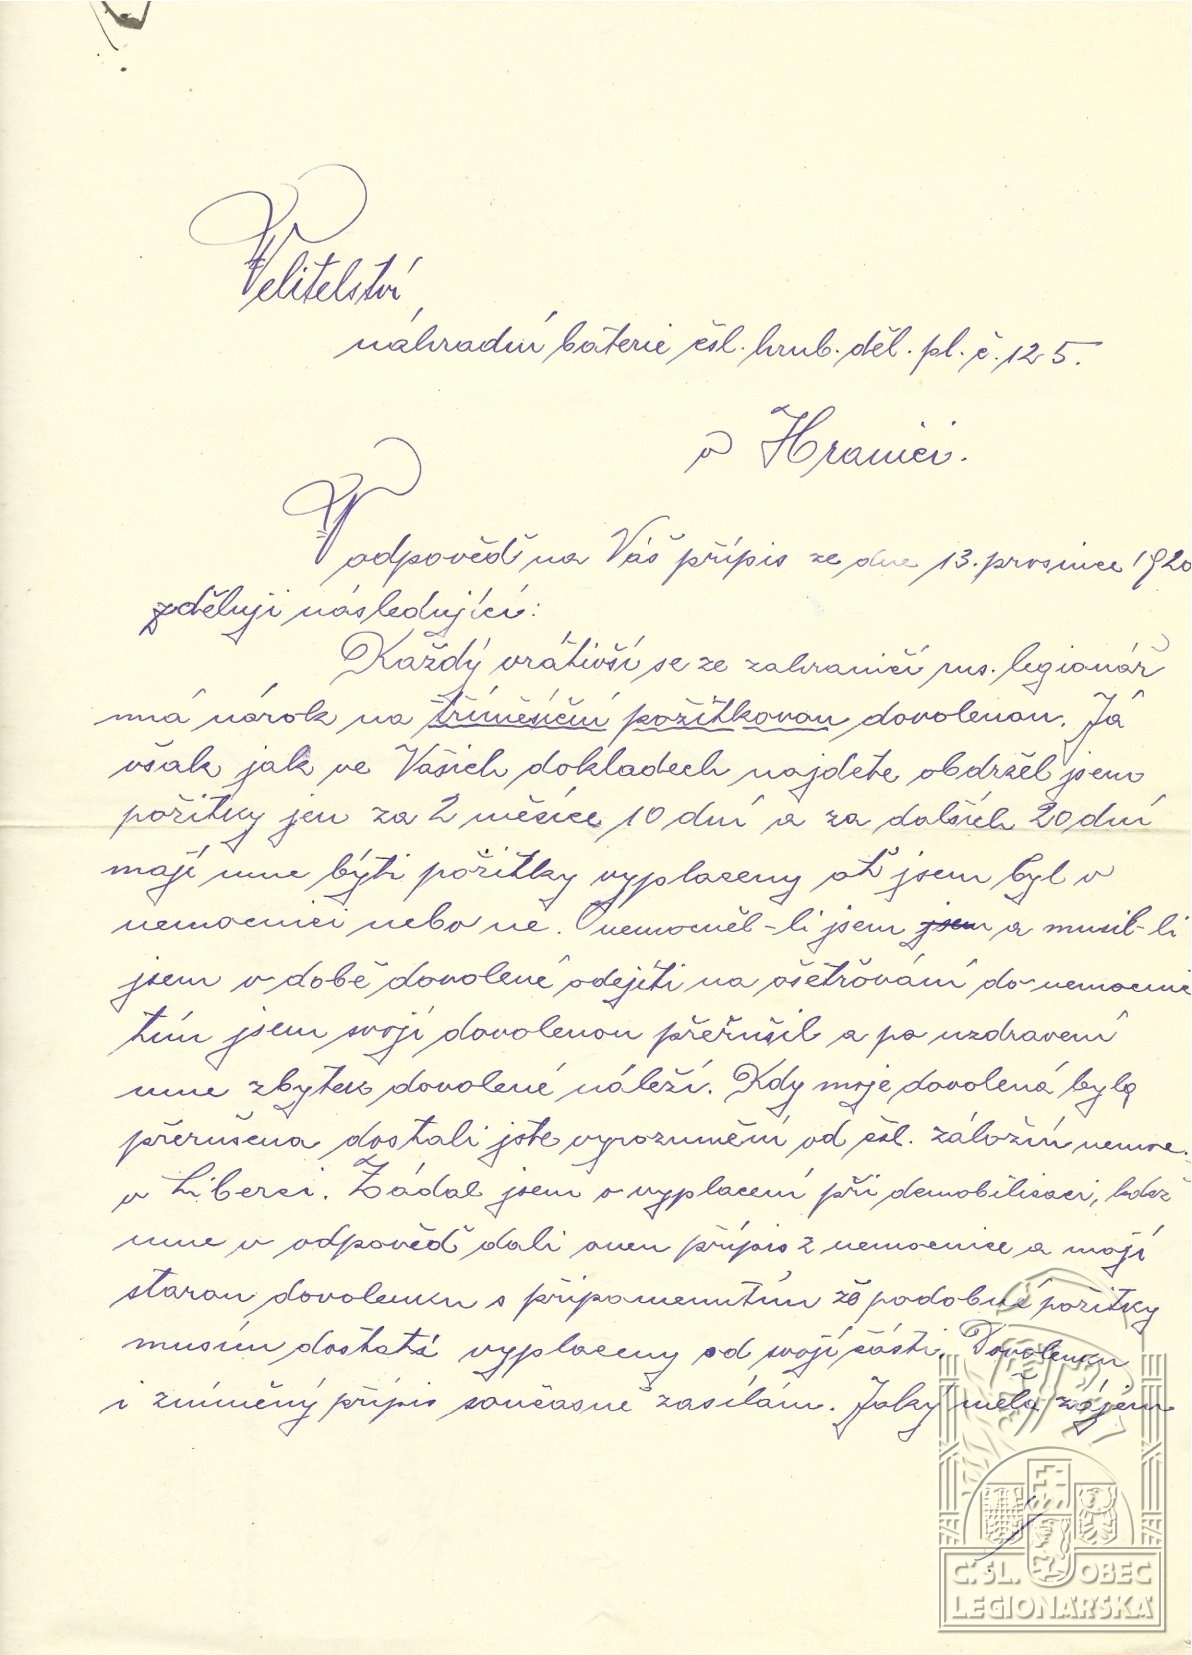 Velitelství
náhradní baterie čsl. hrub. děl. pl. č. 125.
v Hranici.
V odpověď na Váš přípis ze dne 13. prosince 1920
zděluji následující:
Každý vrátivší se ze zahraničí rus. legionář
má nárok na tříměsíční požitkovou dovolenou. Já
však jak ve Vašich dokladech najdete obdržel jsem
požitky jen za 2 měsíce 10 dní a za dalších 20 dní
mají mne býti požitky vyplaceny ať jsem byl v
nemocnici nebo ne. Onemocněl-li jsem jsem a musil-li
jsem v době dovolené odejíti na ošetřování do nemocnice
tím jsem svojí dovolenou přerušil a po uzdravení
mne zbytek dovolené náleží. Kdy moje dovolená byla
přerušena dostali jste vyrozumění od čsl. záložní nemoc.
v Liberci. Žádal jsem o vyplacení při demobilisaci, kdež
mne v odpověď dali onen přípis z nemocnice a mojí
starou dovolenku s připomenutím že podobné požitky
musím dostati vyplaceny od svojí části. Dovolenku
i zmíněný přípis současně zasílám. Jaký měla zájem
Č. SL. OBEC
LEGIONÁŘSKÁ